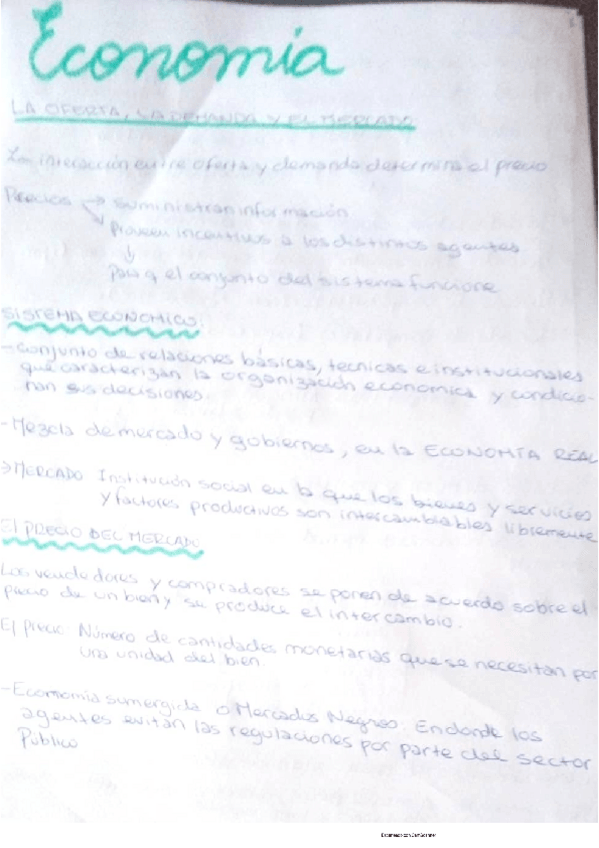 Economía
LA OFERTA, LA DEMANDA Y EL MERCADO
La interacción entre oferta y demanda determina el precio
Precios → suministran información
Proveen incentivos a los distintos agentes
↓
Para q el conjunto del sistema funcione
SISTEMA ECONOMICO:
-Conjunto de relaciones básicas, tecnicas e institucionales
que caracterizan la organización economica y condicio-
nan sus decisiones.
-Mezcla de mercado y gobiernos, en la ECONOMÍA REAL
→MERCADO Institución social en la que los bienes y servicios
y factores productivos son intercambiables libremente
El PRECIO DEL MERCADO
Los vendedores y compradores se ponen de acuerdo sobre el
precio de un bien y se produce el intercambio.
El precio: Número de cantidades monetarias que se necesitan por
una unidad del bien.
-Economia sumergida o Mercados Negros: En donde los
agentes evitan las regulaciones por parte del sector
Público
Escaneado con CamScanner